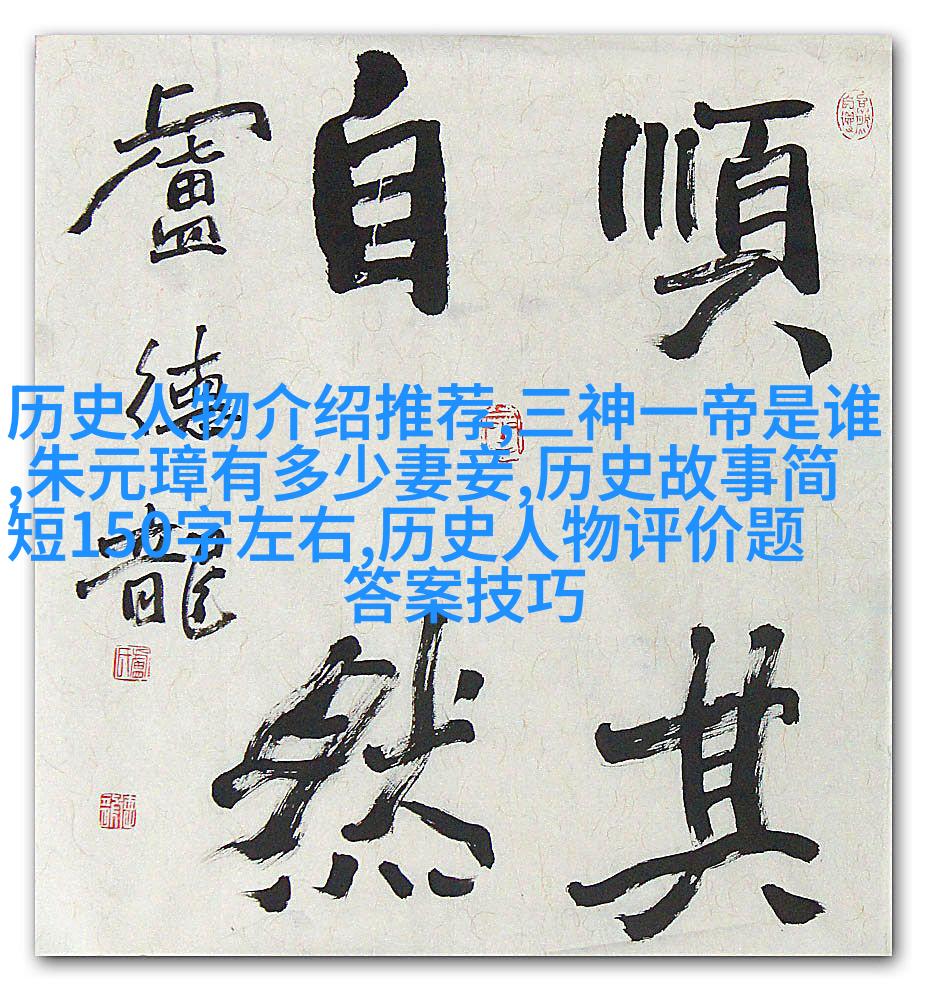 順其
自然
盧德龍
历史人物介绍推荐,三神一帝是谁
,朱元璋有多少妻妾,历史故事简
短150字左右,历史人物评价题
答案技巧